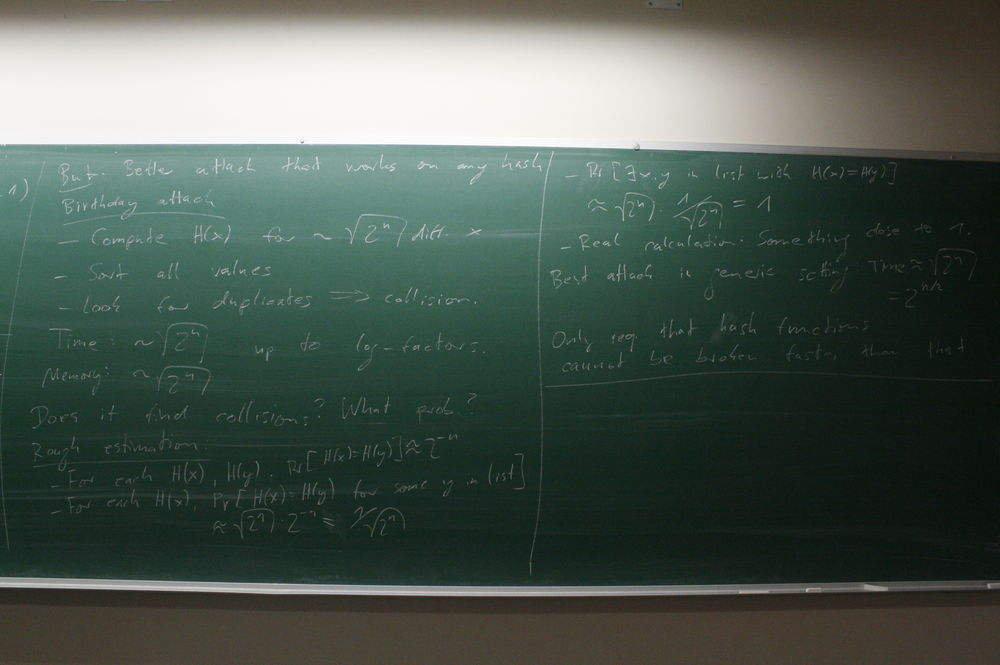 1)
But: Better attack that works on any hash
Birthday attack
– Compute H(x) for ~ √2ⁿ diff. x
– Sort all values
– Look for duplicates ⇒ collision.
Time: ~ √2ⁿ up to log-factors.
Memory: ~ √2ⁿ
Does it find collisions? What prob.?
Rough estimation.
– For each H(x), H(y). Pr[H(x)=H(y)] ≈ 2⁻ⁿ
– For each H(x), Pr[H(x)=H(y) for some y in list]
≈ √2ⁿ · 2⁻ⁿ = 1/√2ⁿ
– Pr[∃x,y in list with H(x)=H(y)]
≈ √2ⁿ · 1/√2ⁿ = 1
– Real calculation: Something close to 1.
Best attack in generic setting Time ≈ √2ⁿ
= 2^{n/2}
Only req. that hash functions
cannot be broken faster than that